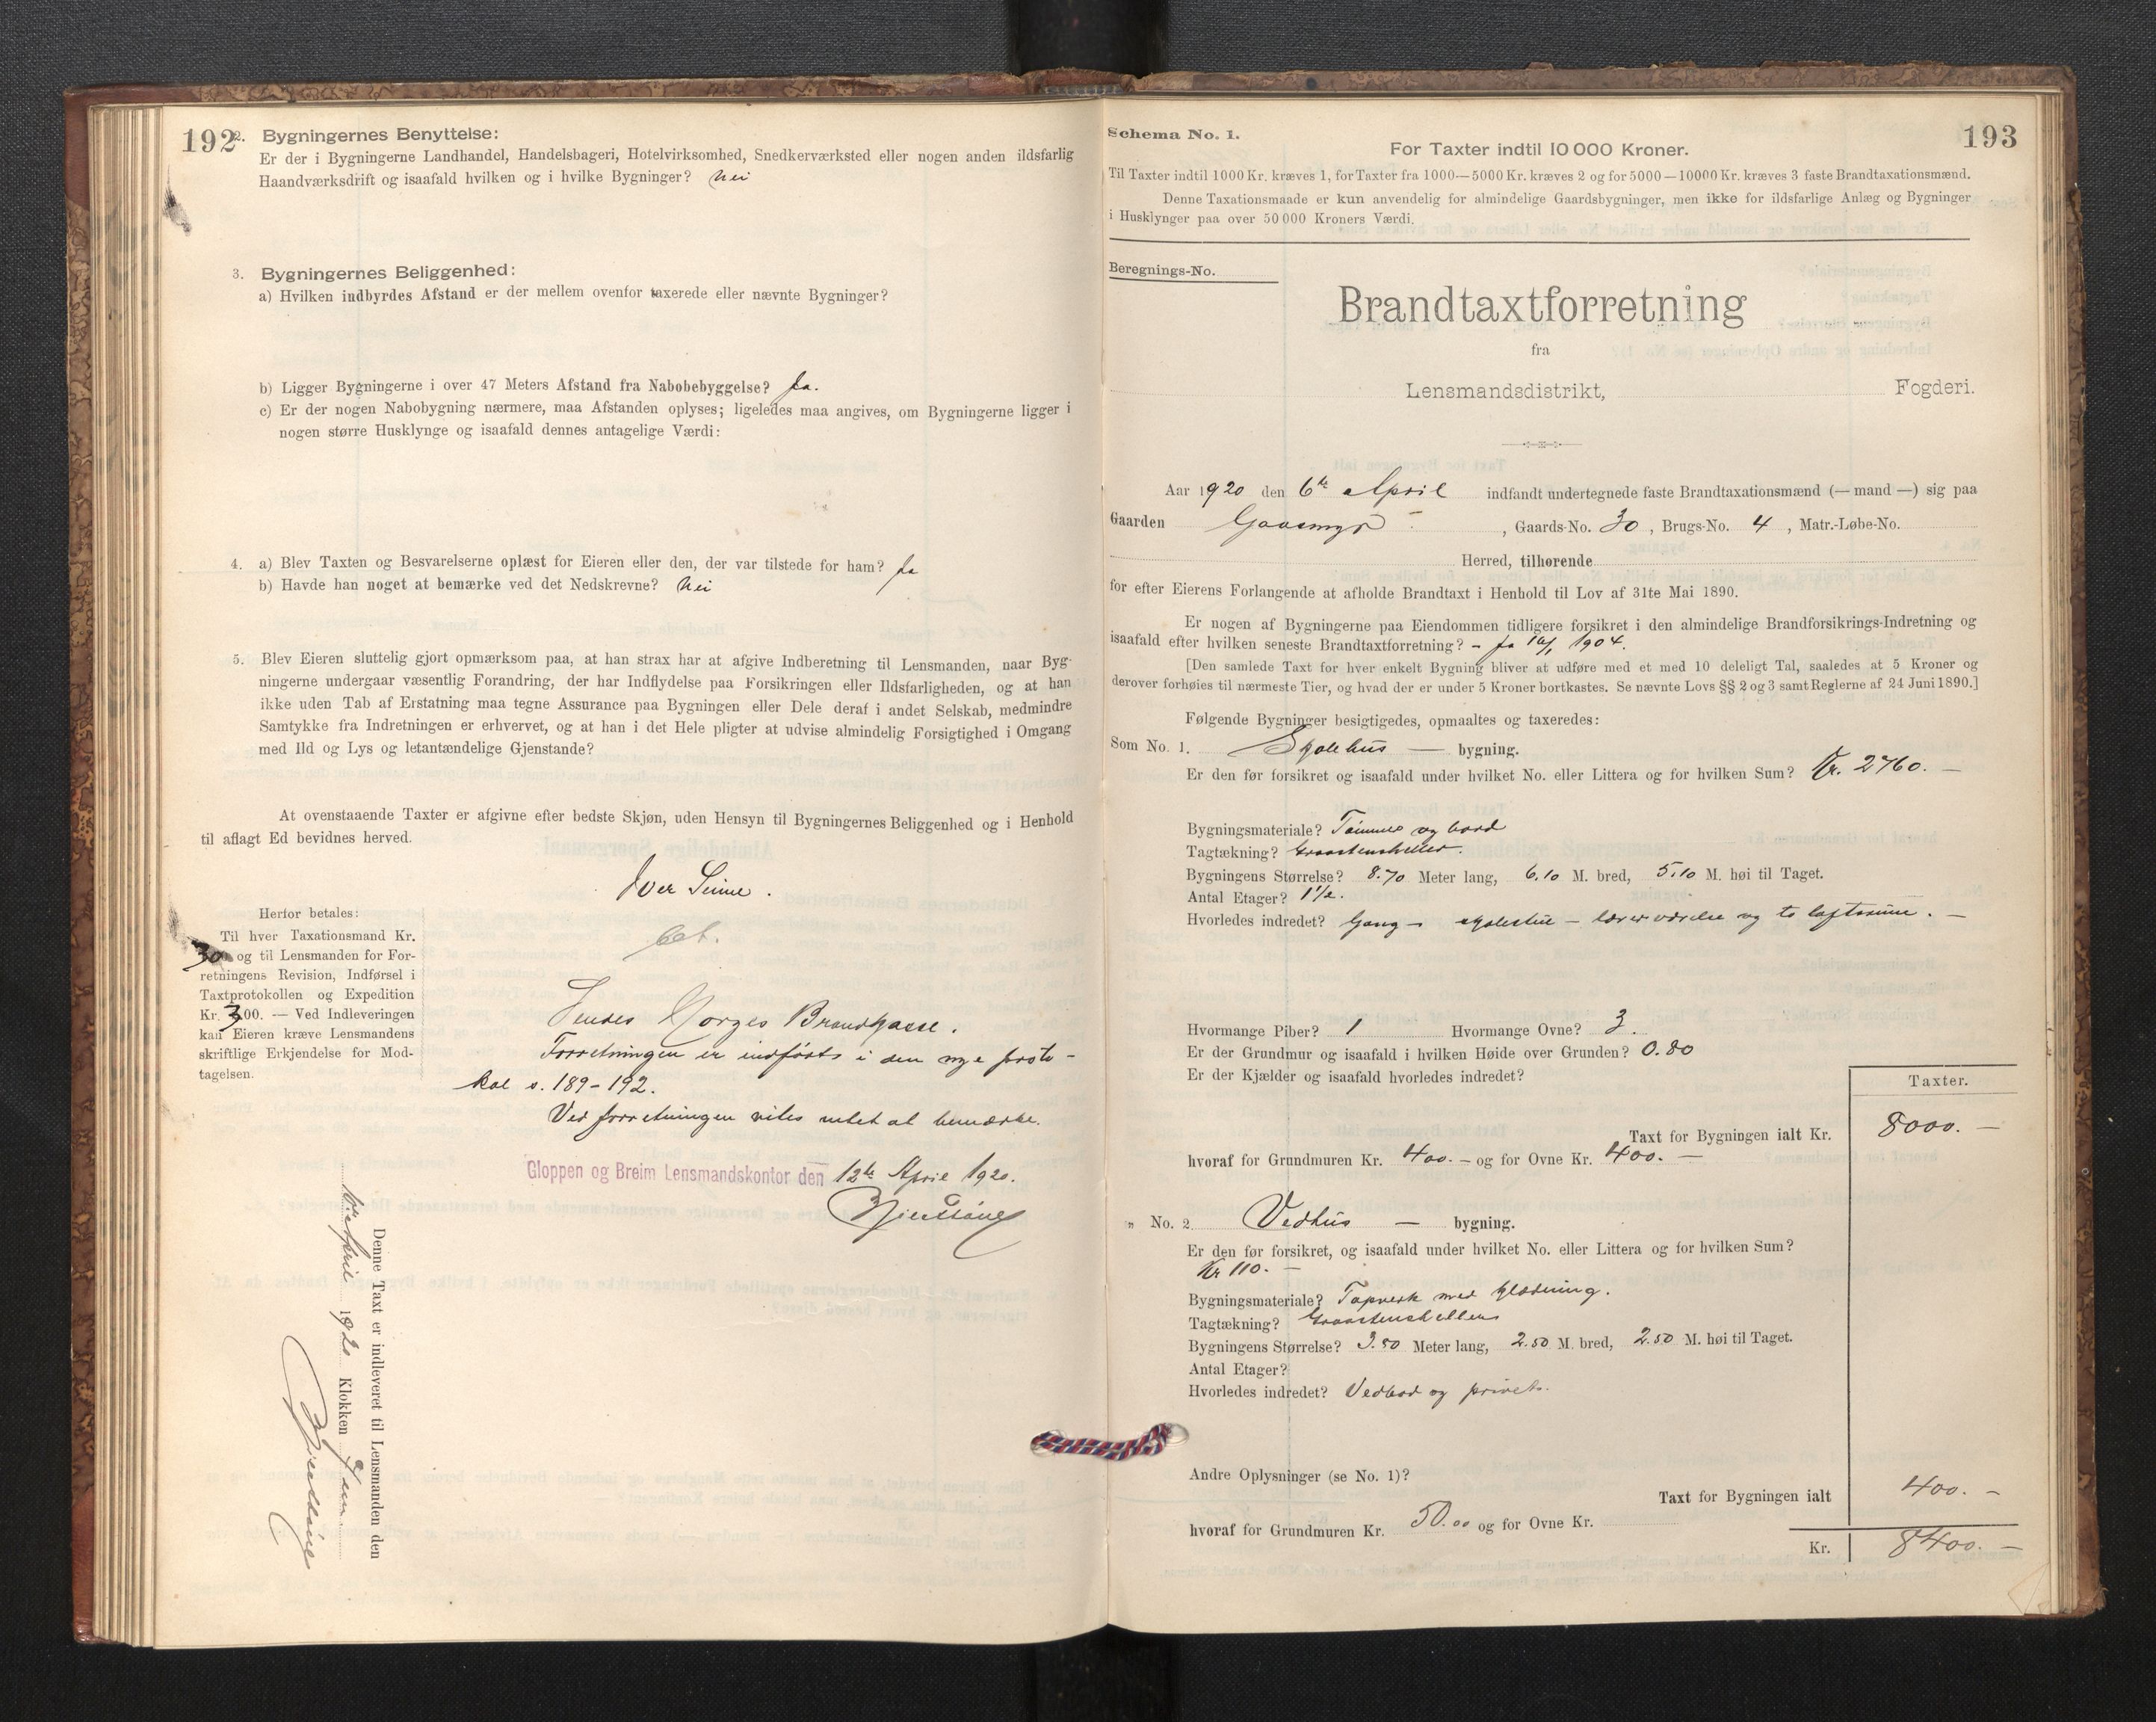 192
2. Bygningernes Benyttelse:
Er der i Bygningerne Landhandel, Handelsbageri, Hotelvirksomhed, Snedkerværksted eller nogen anden ildsfarlig
Haandværksdrift og isaafald hvilken og i hvilke Bygninger? Nei
3. Bygningernes Beliggenhed:
a) Hvilken indbyrdes Afstand er der mellem ovenfor taxerede eller nævnte Bygninger?
b) Ligger Bygningerne i over 47 Meters Afstand fra Nabobebyggelse? Ja.
c) Er der nogen Nabobygning nærmere, maa Afstanden oplyses; ligeledes maa angives, om Bygningerne ligger i
nogen større Husklynge og isaafald dennes antagelige Værdi:
4. a) Blev Taxten og Besvarelserne oplæst for Eieren eller den, der var tilstede for ham? Ja
b) Havde han noget at bemærke ved det Nedskrevne? Nei
5. Blev Eieren sluttelig gjort opmærksom paa, at han strax har at afgive Indberetning til Lensmanden, naar Byg-
ningerne undergaar væsentlig Forandring, der har Indflydelse paa Forsikringen eller Ildsfarligheden, og at han
ikke uden Tab af Erstatning maa tegne Assurance paa Bygningen eller Dele deraf i andet Selskab, medmindre
Samtykke fra Indretningen er erhvervet, og at han i det Hele pligter at udvise almindelig Forsigtighed i Omgang
med Ild og Lys og letantændelige Gjenstande?
At ovenstaaende Taxter er afgivne efter bedste Skjøn, uden Hensyn til Bygningernes Beliggenhed og i Henhold
til aflagt Ed bevidnes herved.
Iver Seime.
Herfor betales:
Til hver Taxationsmand Kr.
30 og til Lensmanden for For-
retningens Revision, Indførsel i
Taxtprotokollen og Expedition
Kr. 3.00. — Ved Indleveringen
kan Eieren kræve Lensmandens
skriftlige Erkjendelse for Mod-
tagelsen.
Sendes Norges Brandkasse.
Forretningen er indført i den nye proto-
kol s. 189-192.
Ved forretningen vites intet at bemærke.
Gloppen og Breim Lensmandskontor den 12te April 1920.
Denne Taxt er indleveret til Lensmanden den
April 1920 Klokken
Schema No. 1.
193
For Taxter indtil 10 000 Kroner.
Til Taxter indtil 1000 Kr. kræves 1, for Taxter fra 1000—5000 Kr. kræves 2 og for 5000—10000 Kr. kræves 3 faste Brandtaxationsmænd.
Denne Taxationsmaade er kun anvendelig for almindelige Gaardsbygninger, men ikke for ildsfarlige Anlæg og Bygninger
i Husklynger paa over 50 000 Kroners Værdi.
Beregnings-No.
Brandtaxtforretning
fra
Lensmandsdistrikt, Fogderi.
Aar 1920 den 6te April indfandt undertegnede faste Brandtaxationsmænd (— mand —) sig paa
Gaarden Gaasmyr, Gaards-No. 30, Brugs-No. 4, Matr.-Løbe-No.
Herred, tilhørende
for efter Eierens Forlangende at afholde Brandtaxt i Henhold til Lov af 31te Mai 1890.
Er nogen af Bygningerne paa Eiendommen tidligere forsikret i den almindelige Brandforsikrings-Indretning og
isaafald efter hvilken seneste Brandtaxtforretning? - Ja 1904.
[Den samlede Taxt for hver enkelt Bygning bliver at udføre med et med 10 deleligt Tal, saaledes at 5 Kroner og
derover forhøies til nærmeste Tier, og hvad der er under 5 Kroner bortkastes. Se nævnte Lovs §§ 2 og 3 samt Reglerne af 24 Juni 1890.]
Følgende Bygninger besigtigedes, opmaaltes og taxeredes:
Som No. 1. Skolehus — bygning.
Er den før forsikret og isaafald under hvilket No. eller Littera og for hvilken Sum? Kr. 2760. —
Bygningsmateriale? Tømmer og bord
Tagtækning? Graastensheller.
Bygningens Størrelse? 8.70 Meter lang, 6,10 M. bred, 5,10 M. høi til Taget.
Antal Etager? 1 1/2.
Hvorledes indredet? Gang - skolestue - lærerværelse og to loftsrum. —
Hvormange Piber? 1 Hvormange Ovne? 3.
Er der Grundmur og isaafald i hvilken Høide over Grunden? 0.80
Er der Kjælder og isaafald hvorledes indredet?
Taxter.
Taxt for Bygningen ialt Kr. 8000. —
hvoraf for Grundmuren Kr. 400. — og for Ovne Kr. 400. —
" No. 2. Vedhus — bygning.
Er den før forsikret, og isaafald under hvilket No. eller Littera og for hvilken Sum?
Kr 110. —
Bygningsmateriale? med klædning.
Tagtækning? Graastensheller
Bygningens Størrelse? 3.50 Meter lang, 2.50 M. bred, 2.50 M. høi til Taget.
Antal Etager?
Hvorledes indredet? Vedbod og privet.
Andre Oplysninger (se No. 1)?
Taxt for Bygningen ialt 400. —
hvoraf for Grundmuren Kr. 50.00 og for Ovne Kr.
Kr. 8400. —